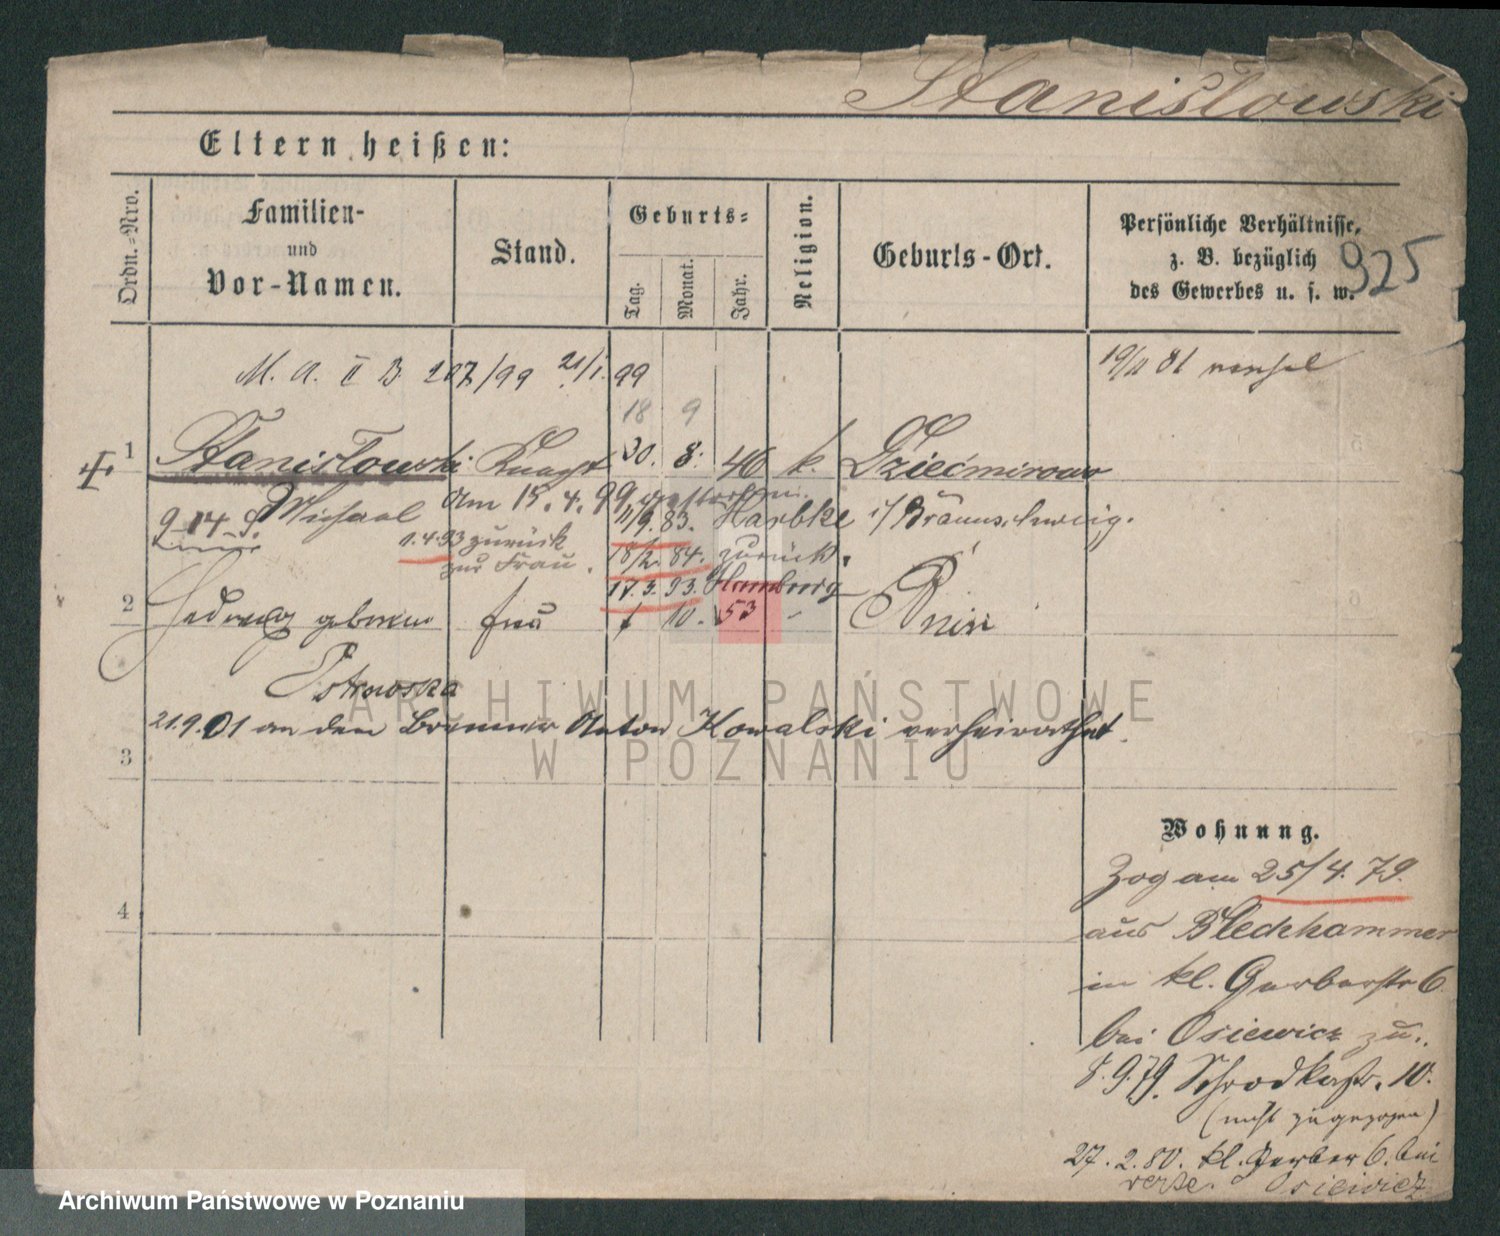 Stanisławski
Eltern heißen:
Ordn.-Nro.
Familien-
und
Vor-Namen.
Stand.
Geburts-
Tag.
Monat.
Jahr.
Religion.
Geburts-Ort.
Persönliche Verhältnisse,
z. B. bezüglich
des Gewerbes u. s. w.
925
M. A. II B 207/99 21/1. 99
19/11 81
18 9
1 Stanisławski Knecht 30. 8. 46 k. Dziećmirowo
Michael am 15. 4. 99 gestorben.
9 14 9
11/9. 83. Harbke i/Braunschweig.
1.4.93 zurück
zur Frau.
18/2. 84. zurück.
17.3.93. Hamburg
2 Hedwig geborene Frau 10. 53 - Bnin
21.9.01 an den Brenner Anton Kowalski verheirathet
3
4
Wohnung.
Zog am 25/4. 79.
aus Blechhammer
in kl. Gerberstr 6
bei Osiewicz zu.
8.9.79. Schrodkastr. 10.
(nicht zugezogen)
27. 2. 80. kl. Gerber 6. bei
Osiewicz
ARCHIWUM PAŃSTWOWE
W POZNANIU
Archiwum Państwowe w Poznaniu